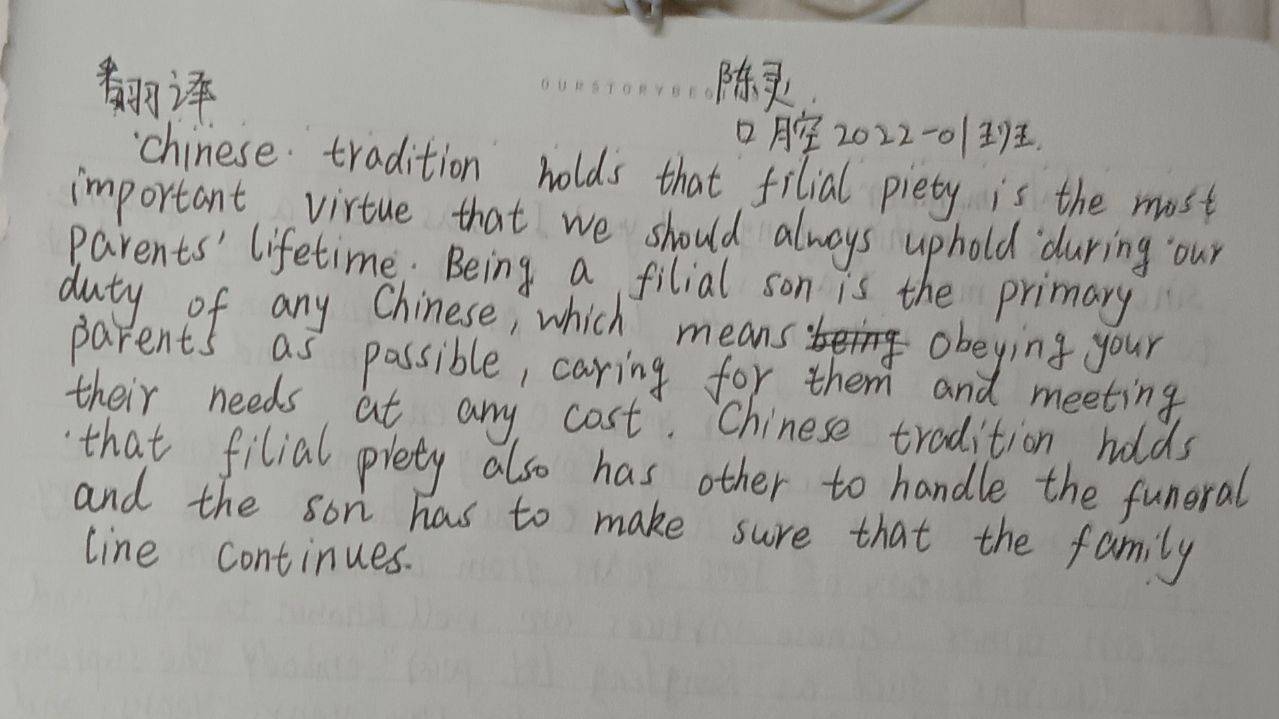 翻译
OURSTORYBEG
陈灵.
口腔2022-01班.
Chinese. tradition holds that filial piety is the most
important virtue that we should always uphold during our
parents' lifetime. Being a filial son is the primary
duty of any Chinese, which means being obeying your
parents as possible, caring for them and meeting
their needs at any cost. Chinese tradition holds
that filial piety also has other to handle the funeral
and the son has to make sure that the family
line continues.